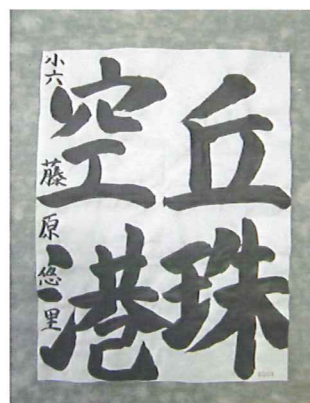 丘珠
空港
小六 藤原悠里